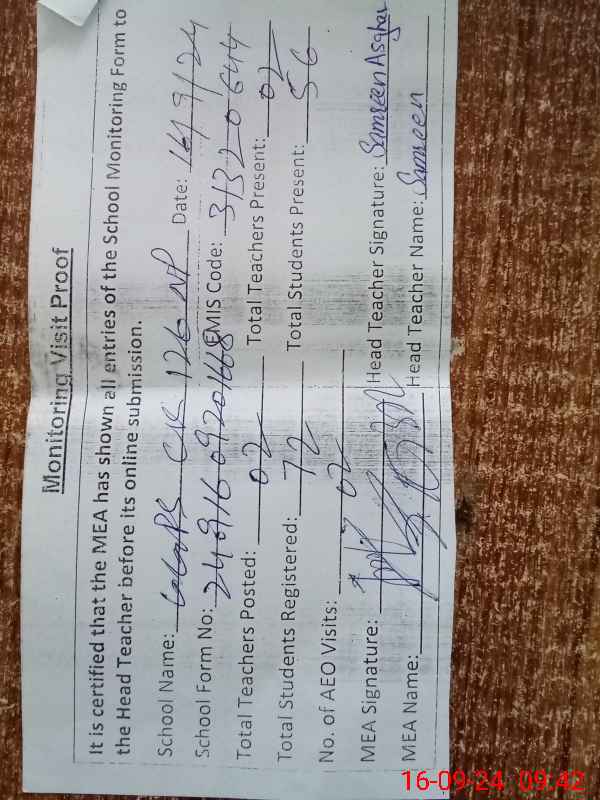 Monitoring Visit Proof
It is certified that the MEA has shown all entries of the School Monitoring Form to
the Head Teacher before its online submission.
School Name: CHK 126 NP Date: 16/9/24
School Form No: EMIS Code: 31320644
Total Teachers Posted: 02 Total Teachers Present: 02
Total Students Registered: 72 Total Students Present: 56
No. of AEO Visits: 02
MEA Signature: Head Teacher Signature: Samreen Asghar
MEA Name: Head Teacher Name: Samreen
16-09-24 09:42